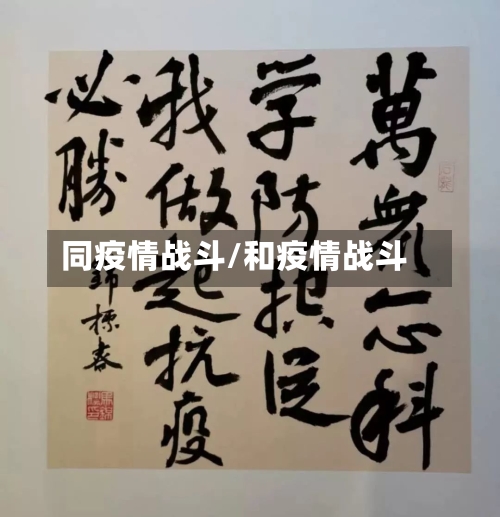 萬眾一心科
学防控從
我做起抗疫
必勝
同疫情战斗/和疫情战斗